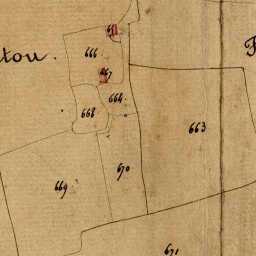 666
667
668
664
663
670
669
671